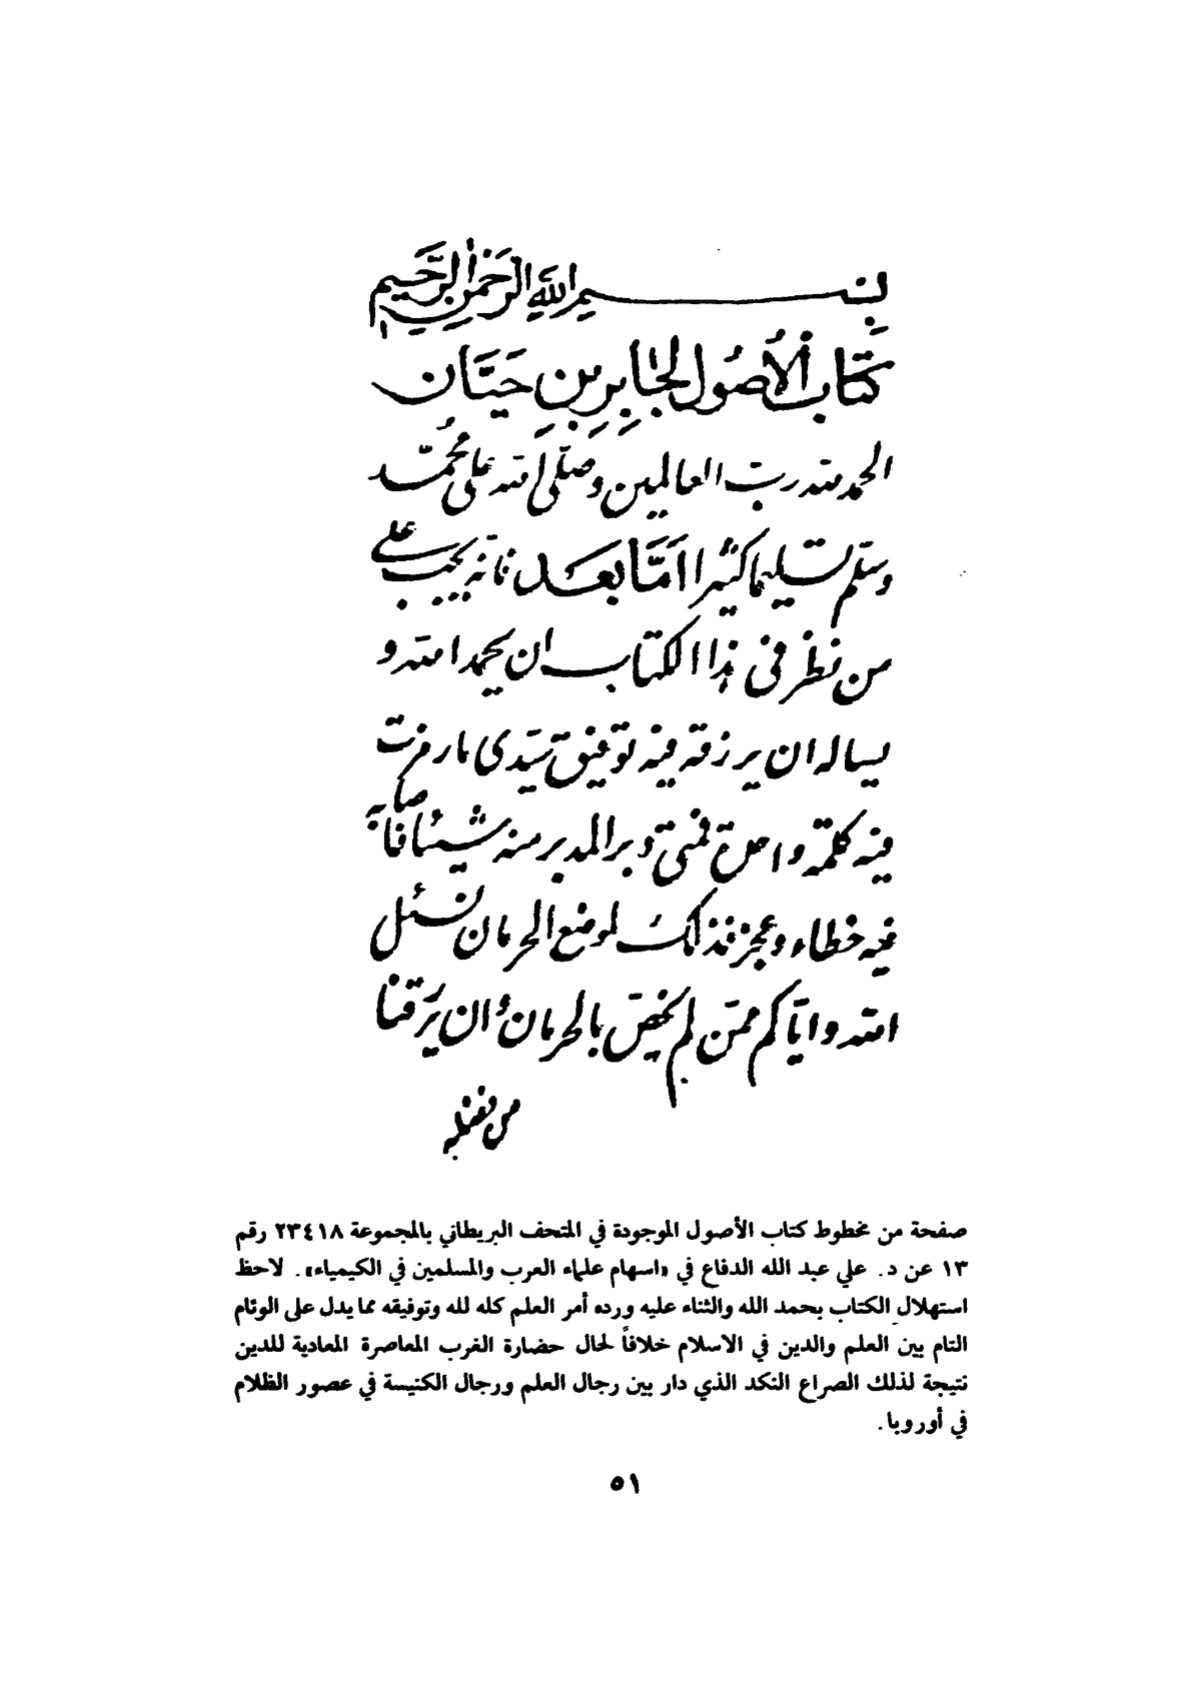 بسم الله الرحمن الرحيم
كتاب الأصول لجابر بن حيّان
الحمد لله رب العالمين وصلّى الله على محمّد
وسلّم تسليما كثيرا امّا بعد فانّه يجب على
من نظر فى هذا الكتاب ان يحمد الله و
يساله ان يرزقه فيه توفيق سيّدى ما رمزت
فيه كلمة واحدة فمتى دبر المدبر منه شيئا فاصابه
فيه خطاء وعجز فذلك لوضع الحرمان نسئل
الله وايّاكم ممّن لم يخصّ بالحرمان وان يرزقنا
من فضله
صفحة من مخطوط كتاب الأصول الموجودة في المتحف البريطاني بالمجموعة ٢٣٤١٨ رقم
١٣ عن د. علي عبد الله الدفاع في «اسهام علماء العرب والمسلمين في الكيمياء». لاحظ
استهلال الكتاب بحمد الله والثناء عليه ورده أمر العلم كله لله وتوفيقه مما يدل على الوئام
التام بين العلم والدين في الاسلام خلافاً لحال حضارة الغرب المعاصرة المعادية للدين
نتيجة لذلك الصراع النكد الذي دار بين رجال العلم ورجال الكنيسة في عصور الظلام
في أوروبا.
٥١